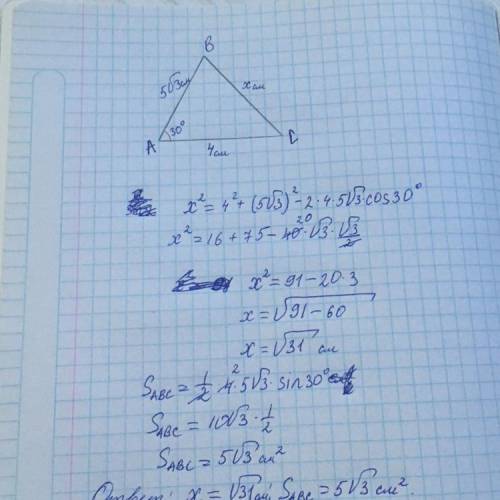 B
5√3 см
x см
30°
A
4 см
C
x² = 4² + (5√3)² - 2·4·5√3·cos30°
x² = 16 + 75 - 40 20·√3·√3/2
x² = 91 - 20·3
x = √91-60
x = √31 см
S ABC = 1/2·4 2·5√3·sin30°
S ABC = 10√3·1/2
S ABC = 5√3 см²
Ответ: x = √31 см; S ABC = 5√3 см².